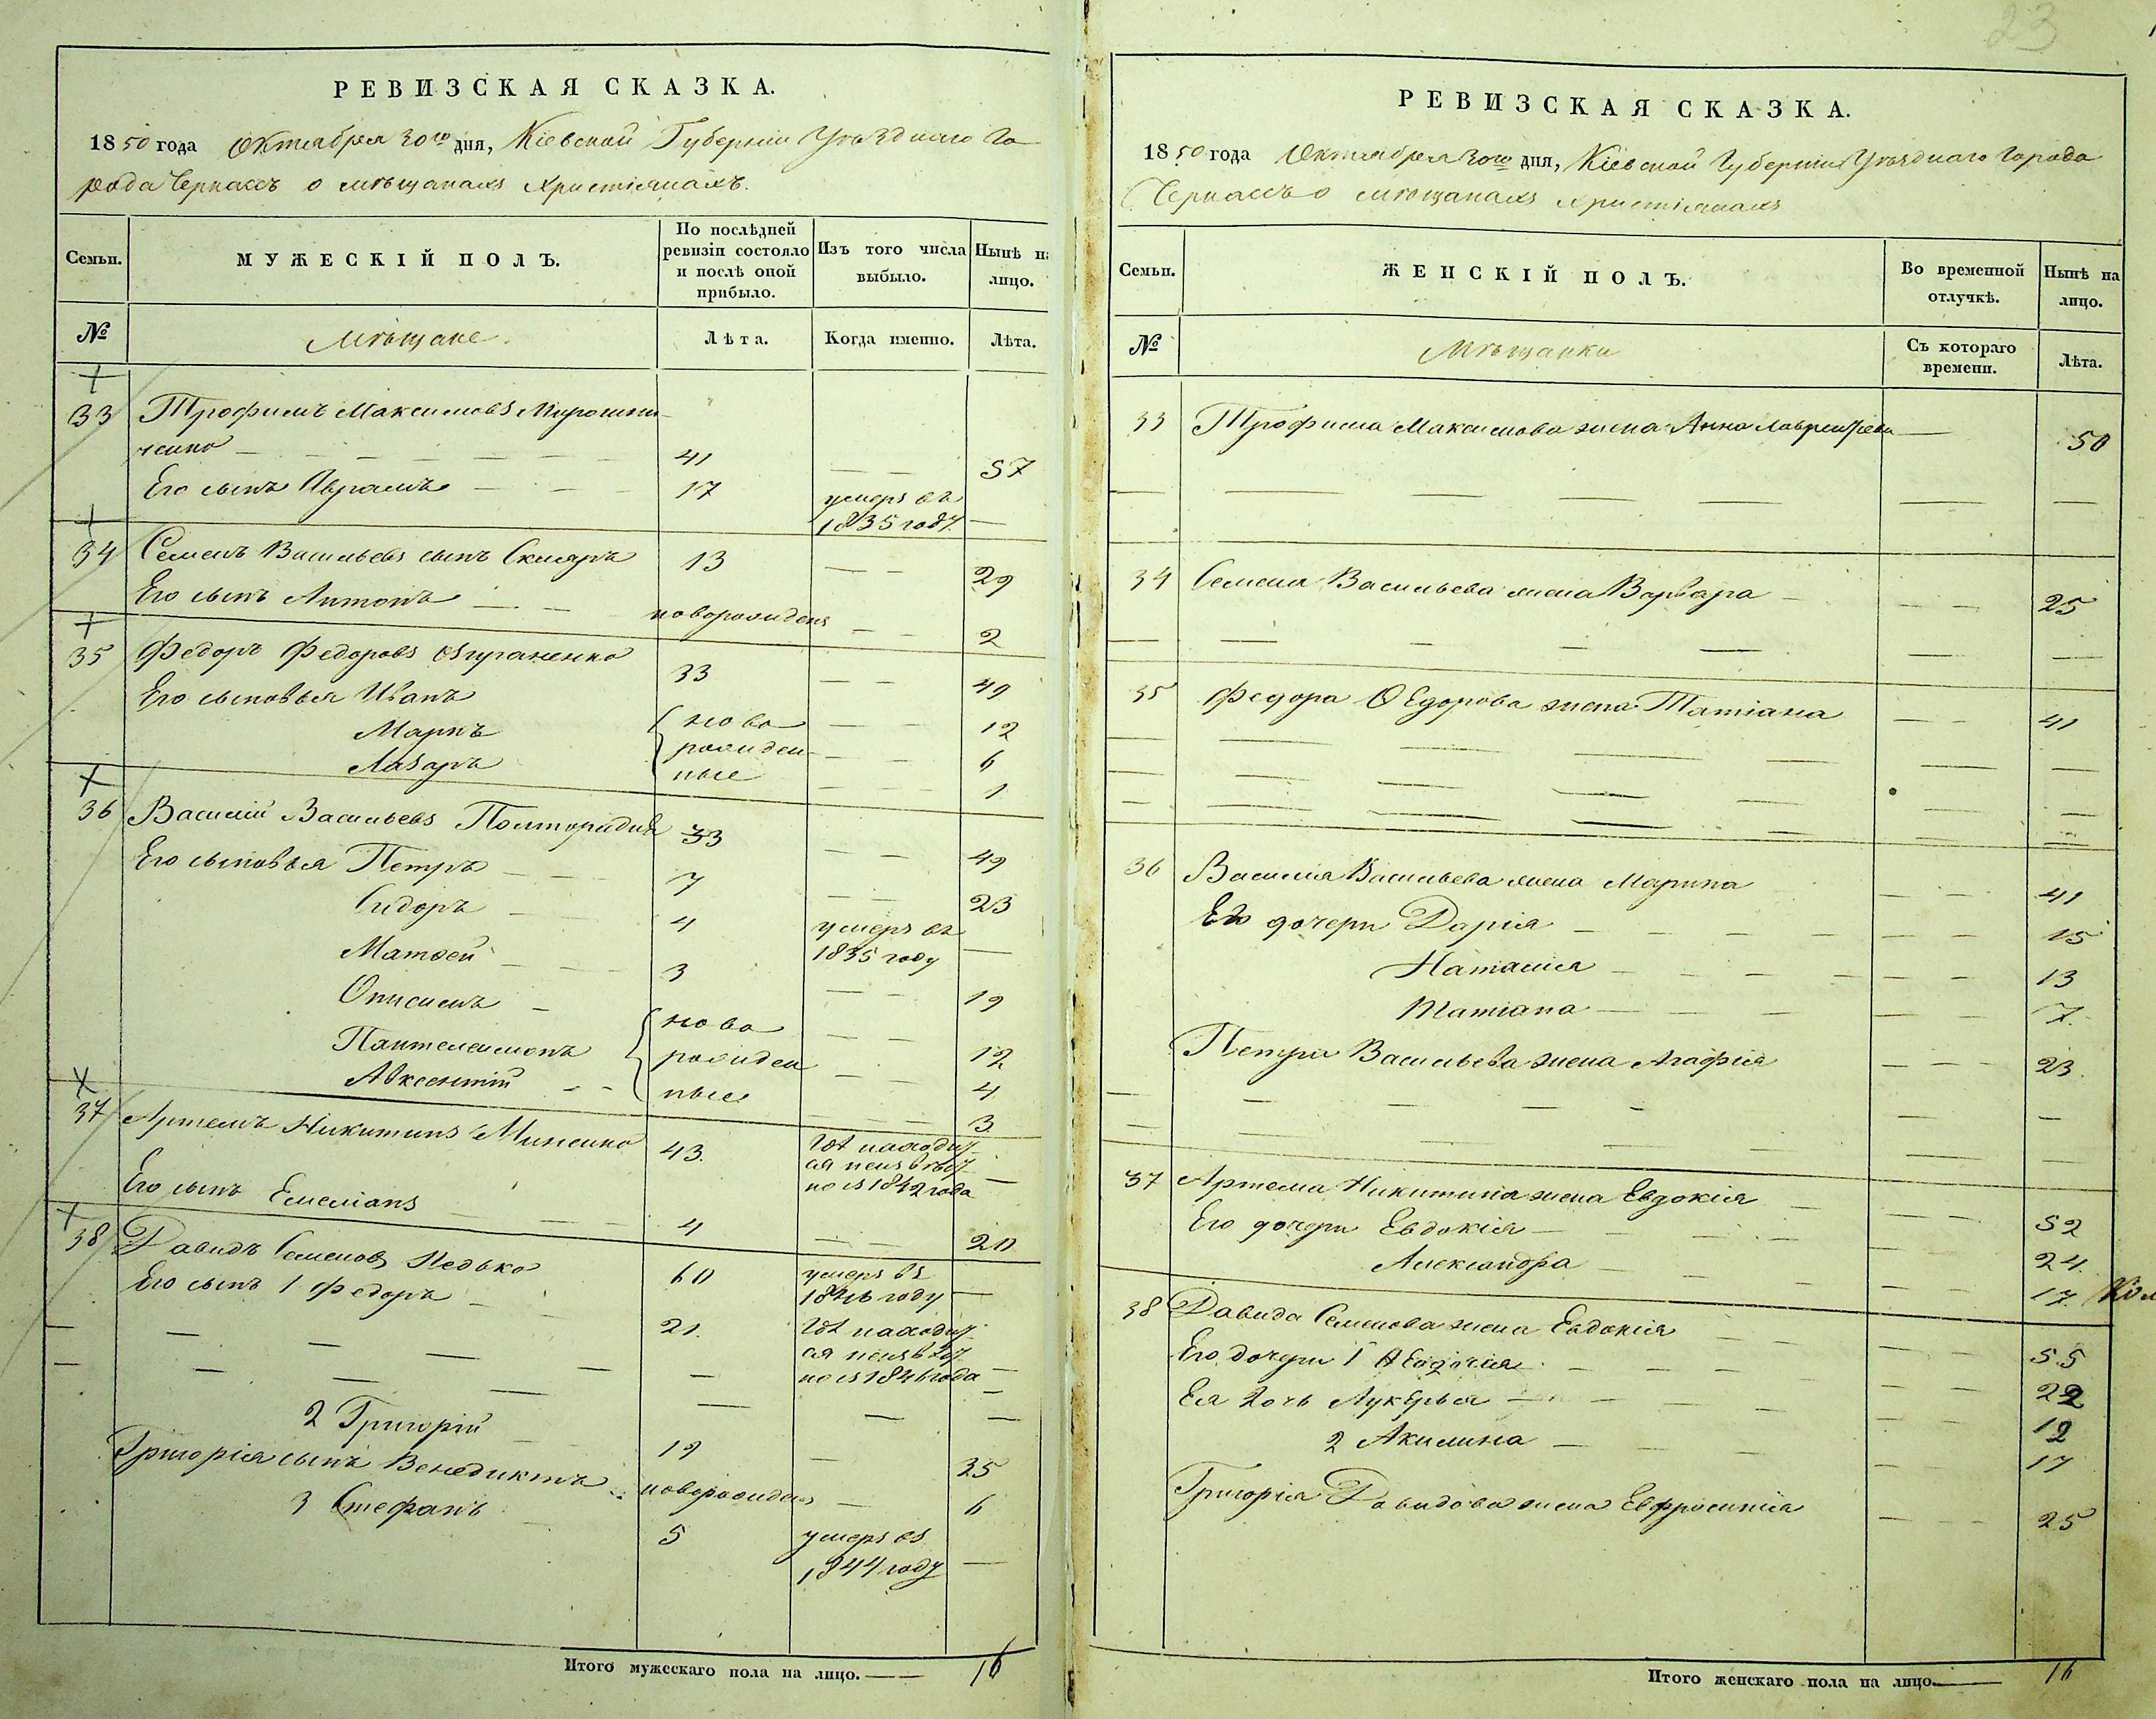 23
РЕВИЗСКАЯ СКАЗКА.
1850 года Октября 30го дня, Кіевской Губерніи Уѣзднаго Го
рода Черкассъ о мѣщанахъ христіянахъ.
Семьи.
МУЖЕСКІЙ ПОЛЪ.
По послѣдней ревизіи состояло и послѣ оной прибыло.
Изъ того числа выбыло.
Нынѣ на лицо.
№
Мѣщане.
Лѣта.
Когда именно.
Лѣта.
33 Трофимъ Максимовъ Мирошни
ченко — 41 — 57
Его сынъ Аврамъ — 17 умеръ въ
1835 году. —
34 Семенъ Васильевъ сынъ Скляръ 13 — 29
Его сынъ Антонъ — новорожденъ — 2
35 Федоръ Федоровъ 33 — 49
Его сыновья Иванъ ново — 12
Маркъ рожден — 6
Лазаръ ные — 1
36 Василій Васильевъ 33 — 49
Его сыновья Петръ — 7 — 23
Сидоръ — 4 умеръ въ
1835 году —
Матвей — 3 — 19
Онисимъ — ново — 12
Пантелеимонъ рожден — 4
Авксентій — ные — 3
37 Артемъ Никитинъ Миненко 43. гдѣ находит
ся неизвѣст
но съ 1842 года —
Его сынъ Емеліанъ — 4 — 20
38 Давидъ Семеновъ Недько 60 умеръ въ
1846 году —
Его сынъ 1 Федоръ — 21. гдѣ находит
ся неизвѣст
но съ 1846 года —
2 Григорій — 19 — 35
Григорія сынъ Венедиктъ новорожденъ — 6
3 Стефанъ — 5 умеръ въ
1844 году —
Итого мужескаго пола на лицо. — 16
РЕВИЗСКАЯ СКАЗКА.
1850 года Октября 30го дня, Кіевской Губерніи Уѣзднаго Города
Черкассъ о мѣщанахъ христіянахъ
Семьи.
ЖЕНСКІЙ ПОЛЪ.
Во временной отлучкѣ.
Нынѣ на лицо.
№
Мѣщанки
Съ котораго времени.
Лѣта.
33 Трофима Максимова жена Анна Лаврентіева — 50
34 Семена Васильева жена Варвара — 25
35 Федора Федорова жена Татіана — 41
36 Василія Васильева жена Марина — 41
Его дочери Дарія — 15
Наталія — 13
Татіана — 7.
Петра Васильева жена Агафія — 23.
37 Артема Никитина жена Евдокія — 52
Его дочери Евдокія — 24.
Александра — 17.
38 Давида Семенова жена Евдокія — 55
Его дочери 1 — 22
Ея дочь Лукерья — 12
2 Акилина — 17
Григорія Давидова жена Евфросинія — 25
Итого женскаго пола на лицо. — 16